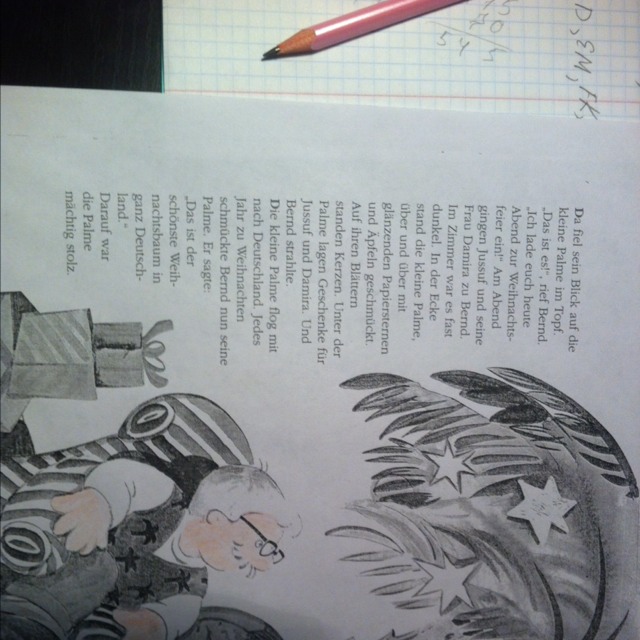 Da fiel sein Blick auf die
kleine Palme im Topf.
„Das ist es!“, rief Bernd.
„Ich lade euch heute
Abend zu Weihnachts-
feier ein!“ Am Abend
gingen Jussuf und seine
Frau Damira zu Bernd.
Im Zimmer war es fast
dunkel. In der Ecke
stand die kleine Palme,
über und über mit
glänzenden Papiersternen
und Äpfeln geschmückt.
Auf ihren Blättern
standen Kerzen. Unter der
Palme lagen Geschenke für
Jussuf und Damira. Und
Bernd strahlte.
Die kleine Palme flog mit
nach Deutschland. Jedes
Jahr zu Weihnachten
schmückte Bernd nun seine
Palme. Er sagte:
„Das ist der
schönste Weih-
nachtsbaum in
ganz Deutsch-
land.“
Darauf war
die Palme
mächtig stolz.